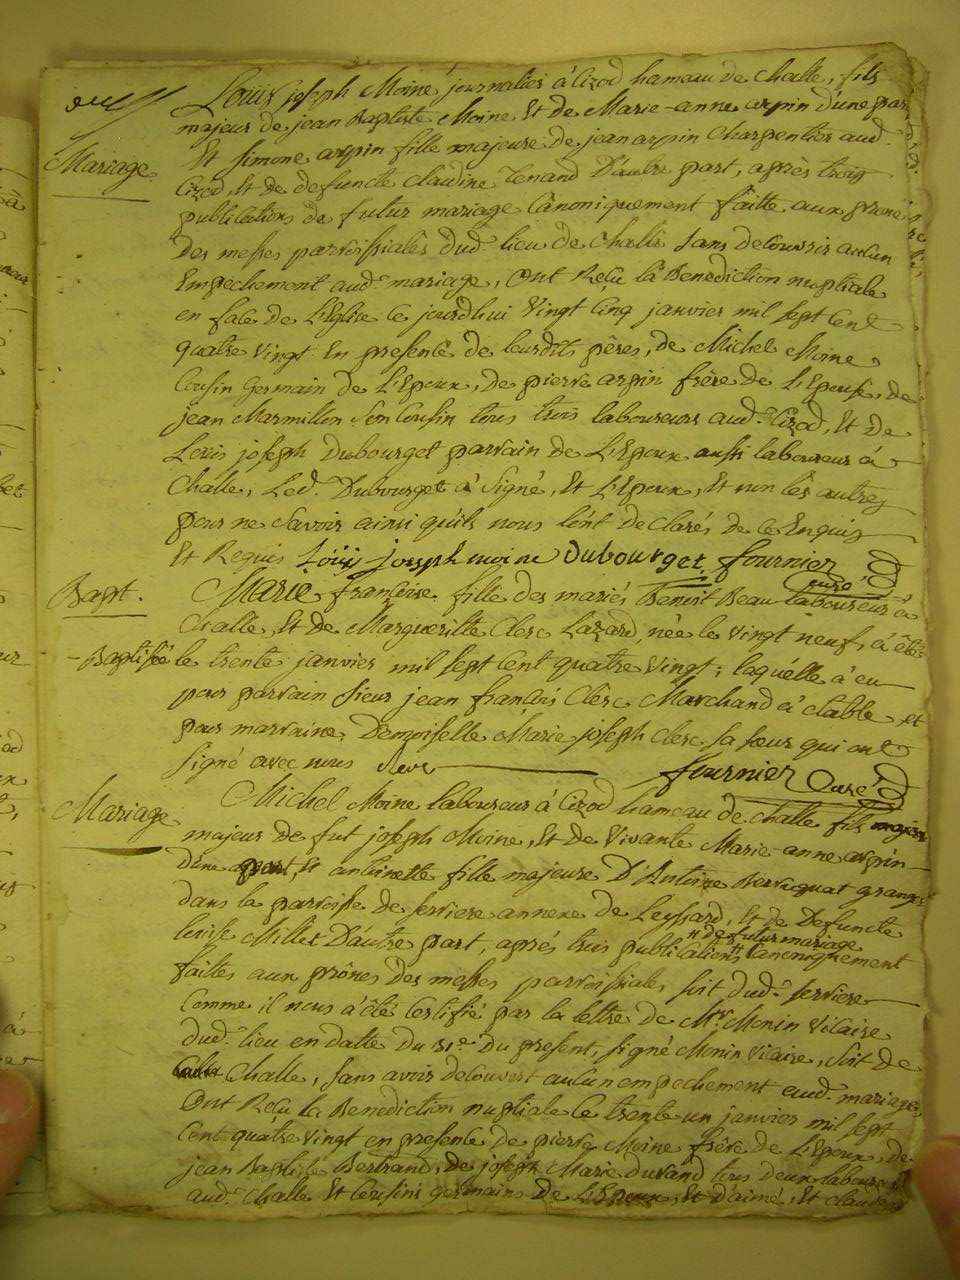 Mariage
Louis joseph Moine journalier à Cizod hamau de Challe, fils
majeur de jean Baptiste Moine Et de Marie-anne arpin d'une par
Et Simone arpin fille majeure de jean arpin Charpentier aud.
Cizod, Et de defuncte Claudine Tenand D'autre part, après trois
publications de futur mariage Canoniquement faitte aux prone
Des messes parroissiales dud. lieu de Challe sans decouvrir aucun
Empechement aud. mariage, Ont Reçu la Benediction nuptiale
en face de L'Eglise Ce jourd'hui Vingt Cinq janvier mil sept Cent
quatre Vingt En presence de leurdits pères, de Michel Moine
Cousin Germain de L'Epoux, de pierre arpin frère de L'Epouse, de
jean Marmillon Son Cousin tous trois laboureurs aud. Cizod, Et de
Louis joseph Dubourget parrain de L'Epoux aussi laboureur à
Challe, Led. Dubourget à Signé, Et L'Epoux, Et non les autres
pour ne Savoir ainsi qu'ils nous l'ont declarés de Ce Enquis
Et Requis Loüis joseph moine Dubourget fournier
curé
Bapt.
Marie françoise fille des mariés Benoit Beau laboureur à
Challe, Et de Margueritte Clerc Lazard, née le Vingt neuf, à été
- Baptisée le trente janvier mil sept Cent quatre Vingt; laquelle à eu
pour parrain Sieur jean françois Clerc Marchand à Etable, et
pour marraine Demoiselle Marie joseph Clerc sa soeur qui ont
Signé avec nous Clerc fournier Curé
Mariage
Michel Moine laboureur à Cizod hameau de Challe fils
majeur de fut joseph Moine, Et de Vivante Marie-anne arpin
D'une part, Et antoinette fille majeure D'Antoine granger
dans la parroisse de Serriere annexe de Leyssard, Et de Defuncte
# de futur mariage
Louise Millet D'autre part, après trois publications # Canoniquement
faites aux prônes des messes parroissiales, soit dud. Serriere
Comme il nous à été Certifié par la lettre de Mr. Monin Vicaire
dud. lieu en datte du 31e. du present, signé Monin Vicaire, soit de
Challe, sans avoir decouvert aucun empechement aud. mariage,
Ont Reçu la Benediction nuptiale Ce trente un janvier mil sept
Cent quatre Vingt en presence de pierre Moine frère de L'Epoux, de
jean Baptiste Bertrand, de joseph Marie durand tous deux laboureurs
aud. Challe Et Cousins germains de L'Epoux, Et d'aimé, Et Claude